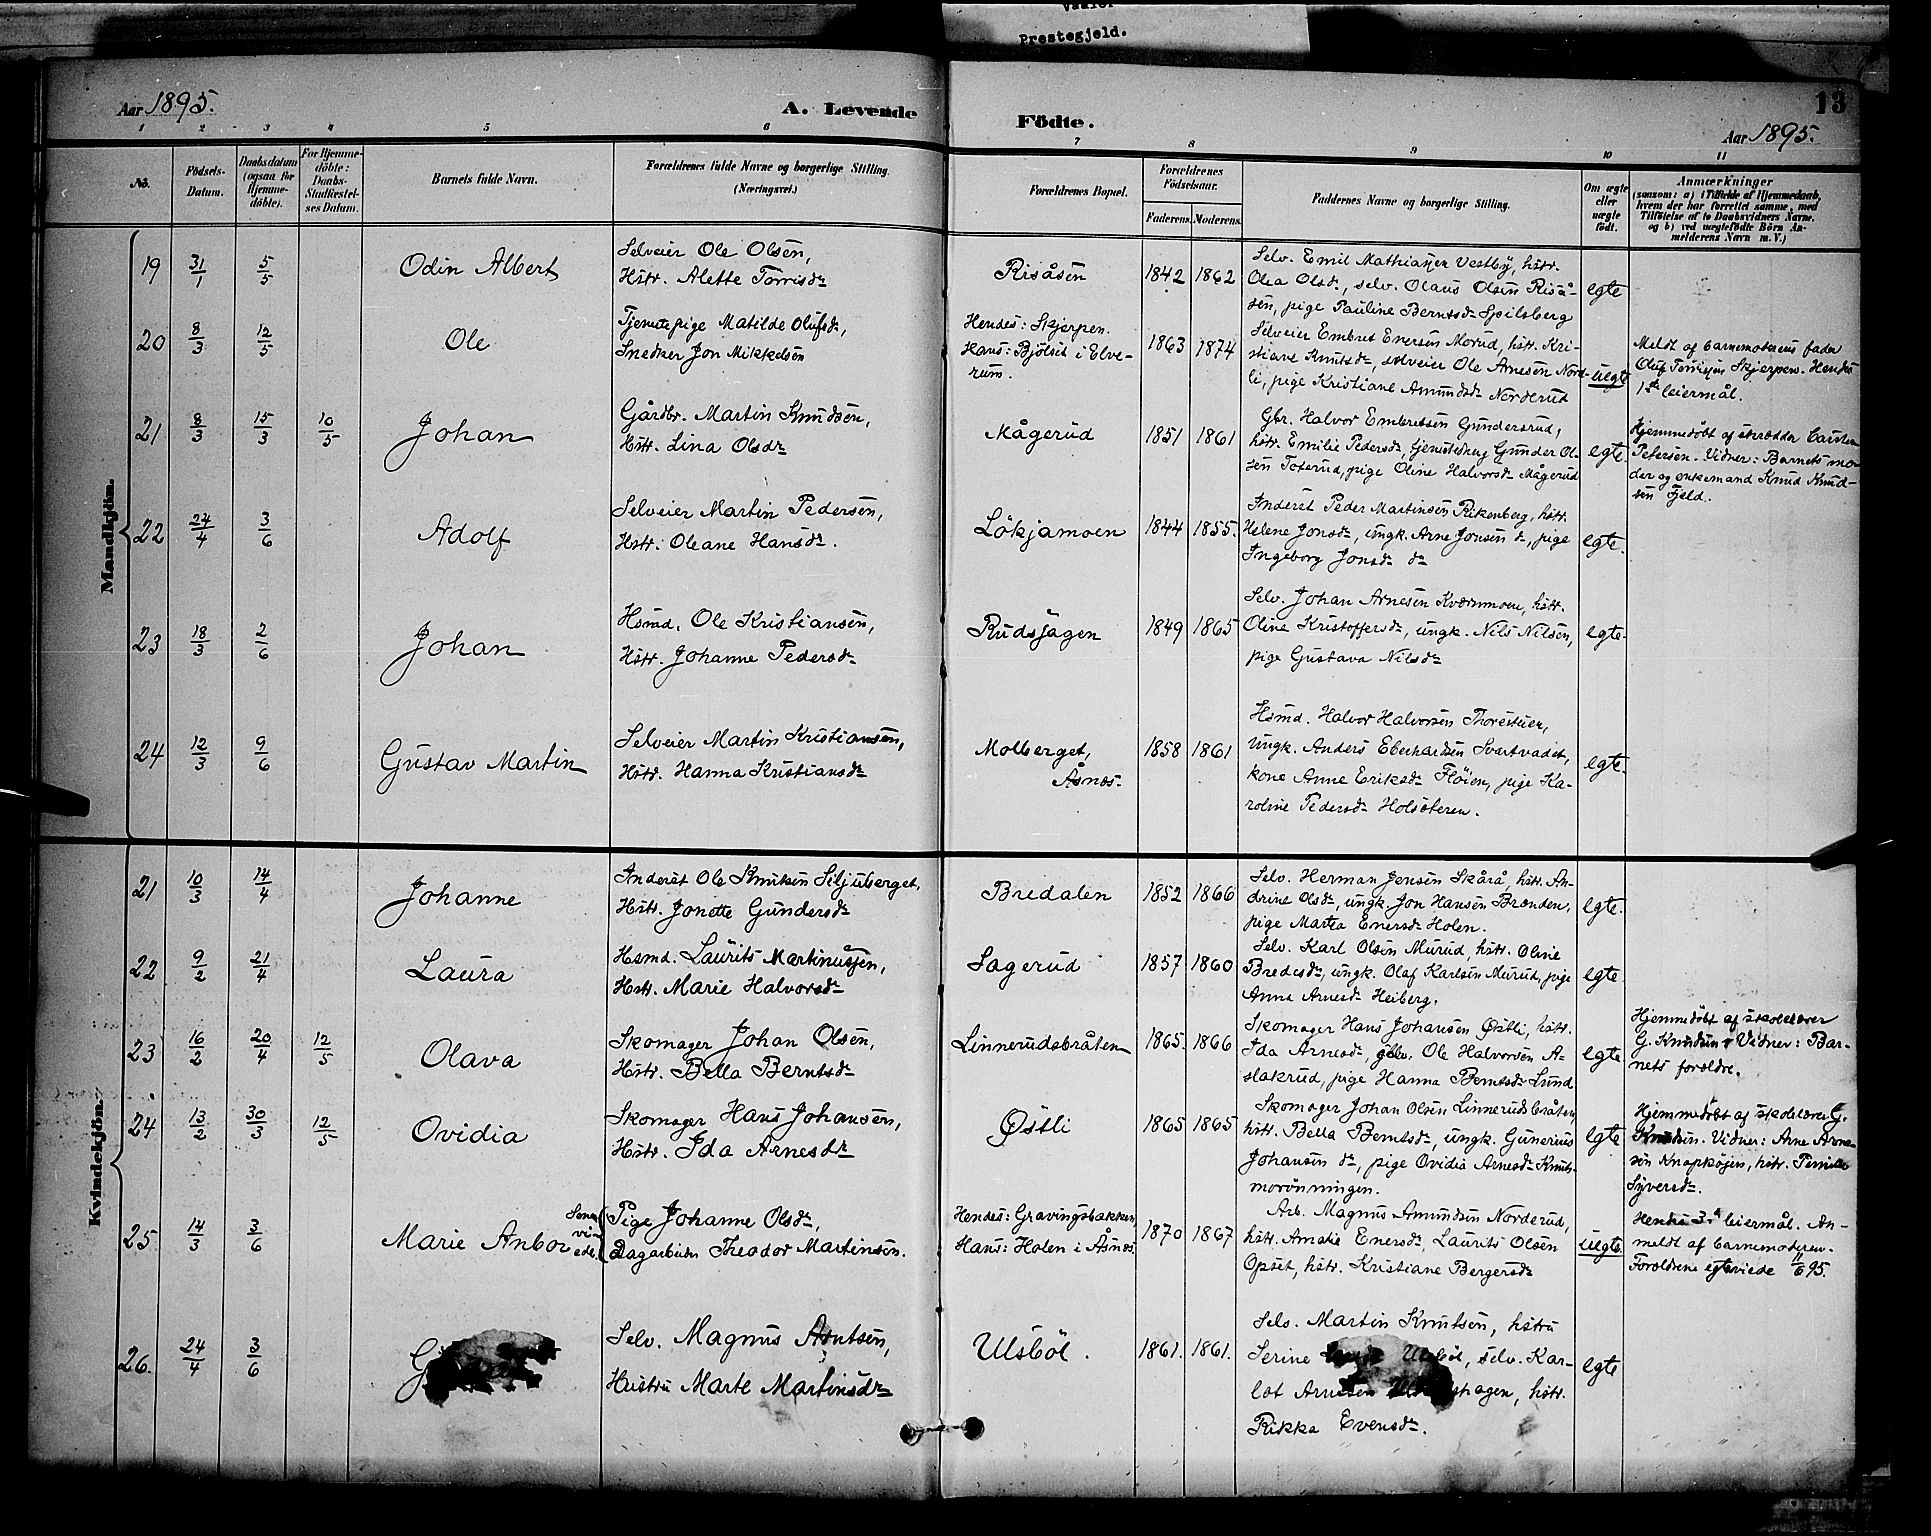 Prestegjeld.
Aar 1895.
A. Levende
Födte.
13
Aar 1895.
1 2 3 4 5 6 7 8 9 10 11
No.
Födsels-
Datum.
Daabsdatum
(ogsaa for
Hjemme-
döbte).
For Hjemme-
döbte:
Daabs-
Stadfæstel-
ses Datum.
Barnets fulde Navn.
Forældrenes fulde Navne og borgerlige Stilling.
(Næringsvei.)
Forældrenes Bopæl.
Forældrenes
Födselsaar.
Faderens. Moderens.
Faddernes Navne og borgerlige Stilling.
Om ægte
eller
uægte
födt.
Anmærkninger
(saasom: a) i Tilfælde af Hjemmedaab,
hvem der har forrettet samme, med
Tilföielse af to Daabsvidners Navne,
og b) ved uægtefödte Börn An-
melderens Navn m. V.)
Mandkjön.
19 31/1 5/5 Odin Albert
Selveier Ole Olsen,
Hstr. Alette Torrisdr
Risåsen 1842 1862
Selv. Emil Mathiassen Vestby, hstr.
Olea Olsdr, selv. Olaus Olsen Riså-
sen, pige Pauline Berntsdr Spilsberg
egte
20 8/3 12/5 Ole
Tjenestepige Matilde Olufsdr,
Snedker Jon Mikkelsen
Hendes: Skjerpen.
Hans: Bjölset i Elve-
rum.
1863 1874
Selveier Embret Enersen Morud, hstr. Kri-
stiane Knutsdr, selveier Ole Arnesen Nord-
li, pige Kristiane Amundsdr Norderud
uegte
Meldt af barnemoderens fader
Oluf Skjerpen. Hendes
1ste leiermål.
21 8/3 15/3 10/5 Johan
Gårdbr. Martin Knudsen,
Hstr. Lina Olsdr
Mågerud 1851 1861
Gbr. Halvor Embretsen Gundersrud,
hstr. Emilie Pedersdr, Gunder Ol-
sen, pige Oline Halvorsdr Mågerud
egte.
Hjemmedöbt af skrædder
Petersen. Vidner: Barnets mo-
der og enkemand Knud Knud-
sen Fjeld.
22 24/4 3/6 Adolf
Selveier Martin Pedersen,
Hstr. Oleane Hansdr.
Lökjamoen 1844 1855.
Inderst Peder Martinsen Rikenberg, hstr.
Helene Jonsdr, ungk. Arne Jonsen do, pige
Ingeborg Jonsdr do
egte.
23 18/3 2/6 Johan
Hsmd. Ole Kristiansen,
Hstr. Johanne Pedersdr
Rudshagen 1849 1865
Selv. Johan Arnesen Kværnmoen, hstr.
Oline Kristoffersdr, ungk. Nils Nilsen,
pige Gustava Nilsdr
egte.
24 12/3 9/6 Gustav Martin
Selveier Martin Kristiansen,
Hstr. Hanna Kristiansdr
Molberget,
Åsnes.
1858 1861
Hsmd. Halvor Halvorsen,
Ungk. Anders Eberhardsen Svartvadet,
kone Anne Eriksdr Flöien, pige Ka-
roline Pedersdr Holsæteren.
egte.
Kvindekjön.
21 10/3 14/4 Johanne
Inderst Ole Knutsen Siljuberget,
Hstr. Jonette Gundersdr
Bredalen 1852 1866
Selv. Herman Jensen Skårå, hstr. An-
drine Olsdr, ungk. Jon Hansen Brænden,
pige Marta Enersdr Holen.
egte.
22 9/2 21/4 Laura
Hsmd. Laurits Martinussen,
Hstr. Marie Halvorsdr
Sagerud 1857 1860
Selv. Karl Olsen Murud, hstr. Oline
Bredesdr, ungk. Olaf Karlsen Murud, pige
Anna Arnesdr Heiberg.
egte.
23 16/2 20/4 12/5 Olava
Skomager Johan Olsen,
Hstr. Bella Berntsdr
Linnerudsbråten 1865. 1866
Skomager Hans Johansen Østli, hstr.
Ida Arnesdr, selv. Ole Halvorsen A-
slakrud, pige Hanna Berntsdr Lund
egte
Hjemmedöbt af skolelærer
G. Knudsen. Vidner: Bar-
nets forældre.
24 13/2 30/3 12/5 Ovidia
Skomager Hans Johansen,
Hstr. Ida Arnesdr
Østli 1865 1865
Skomager Johan Olsen Linnerudsbråten,
hstr. Bella Berntsdr, ungk. Gunerius
Johansen do, pige Ovidia Arnesdr Knuts-
morönningen.
egte
Hjemmedöbt af skolelærer G.
Knudsen. Vidner: Arne Arne-
sen Knapkojen, hstr. Pernille
Syversdr.
25 14/3 3/6 Marie Anbor
Pige Johanne Olsdr,
Dagarbeider Theodor Martinsen.
Hendes: Gravingsbakken,
Hans: Holen i Åsnes.
1870 1867
Arb. Magnus Amundsen Norderud,
hstr. Amalie Enersdr, Laurits Olsen
Opset, hstr. Kristiane Bergersdr
uegte
Hendes 3die leiermål. An-
meldt af barnemoderen.
Forældrene egteviede 11/6 95.
26. 24/4 3/6
Selv. Magnus Arntsen,
Hustru Marte Martinsdr
Ulsböl. 1861. 1861.
Selv. Martin Knutsen, hstru
Serine Ulsböl, selv. Kar-
lot Arnesen hagen, hstr.
Rikka Evensdr.
egte